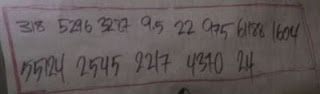 318 5296 3277 9.5 22 975 61188 1604
55124 2545 2217 4370 24